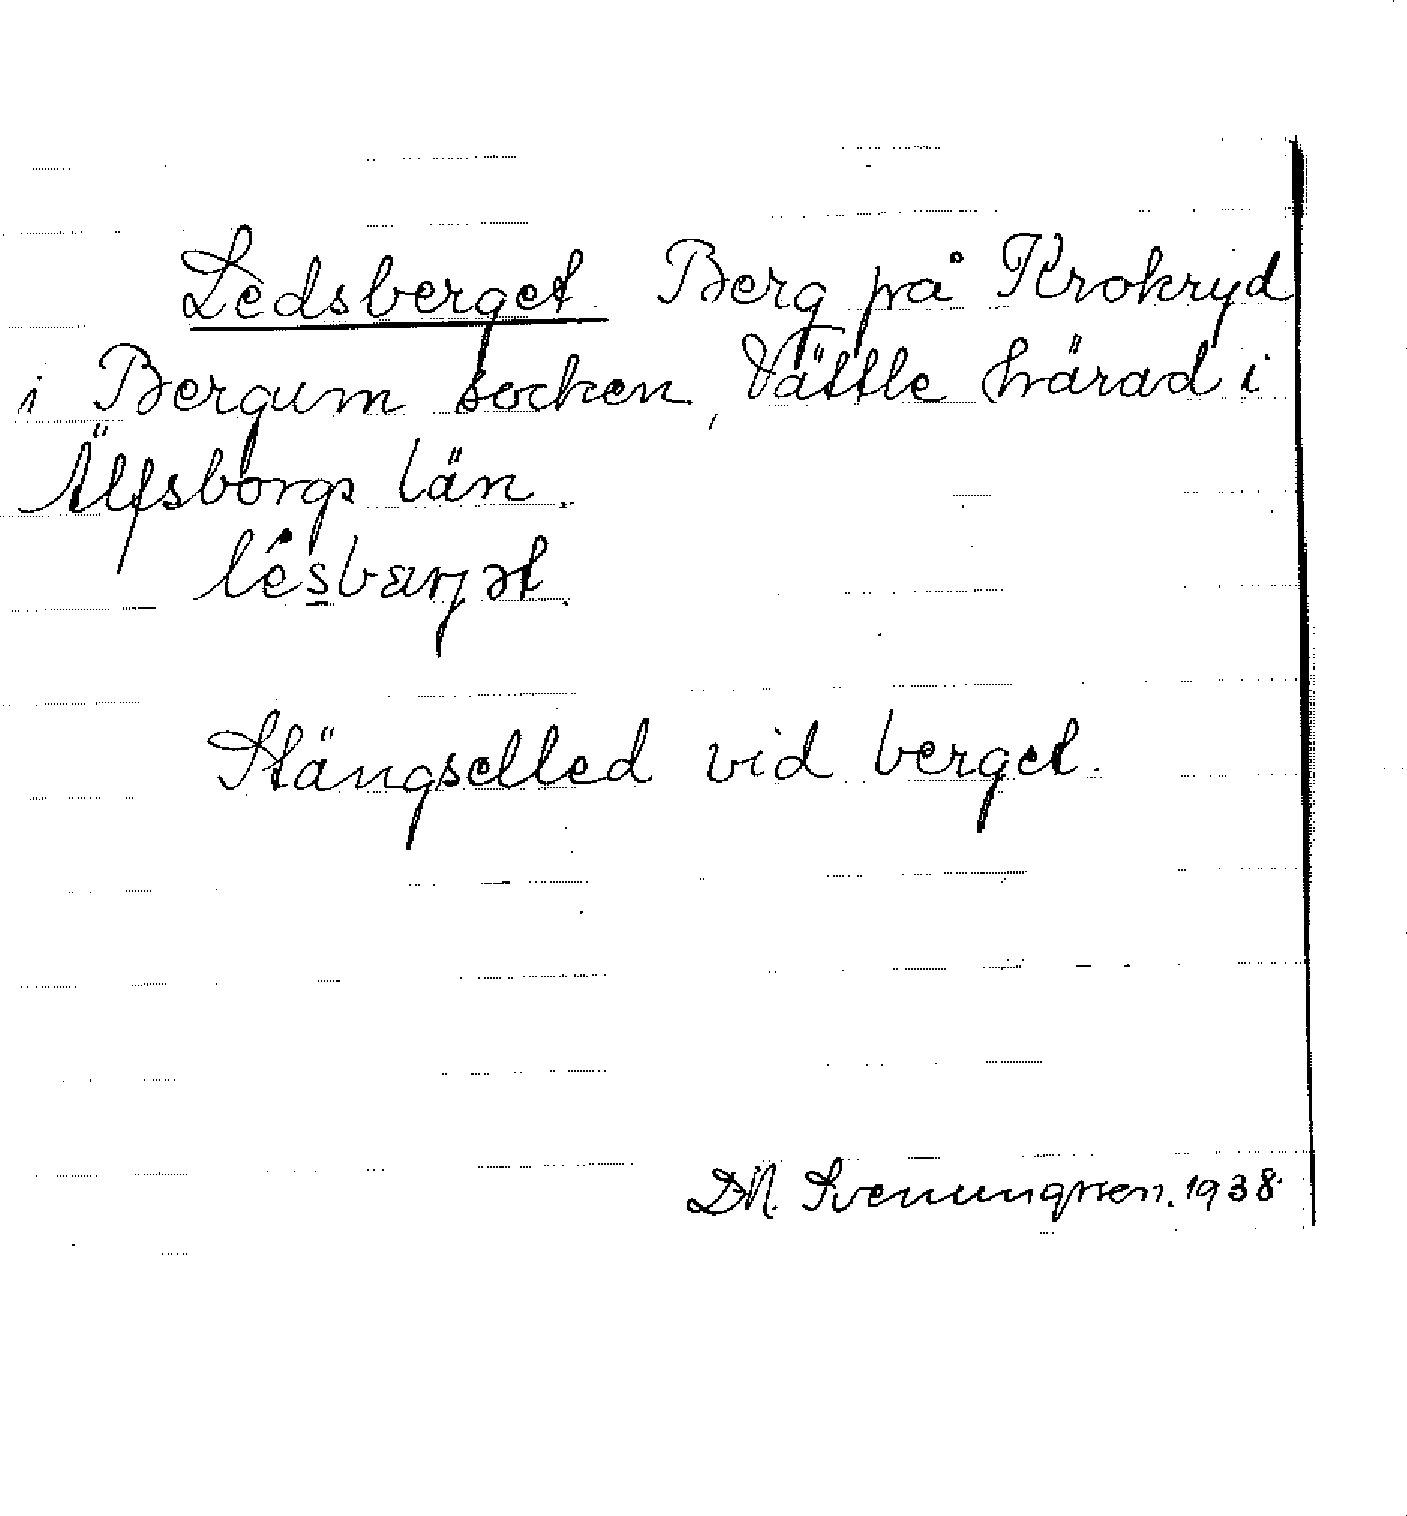 Ledsberget. Berg på Krokryd
i Bergum socken, Vättle härad i
Älfsborgs län.
lésbærjət.
Stängselled vid berget.
D.N. Svenungsson. 1938.